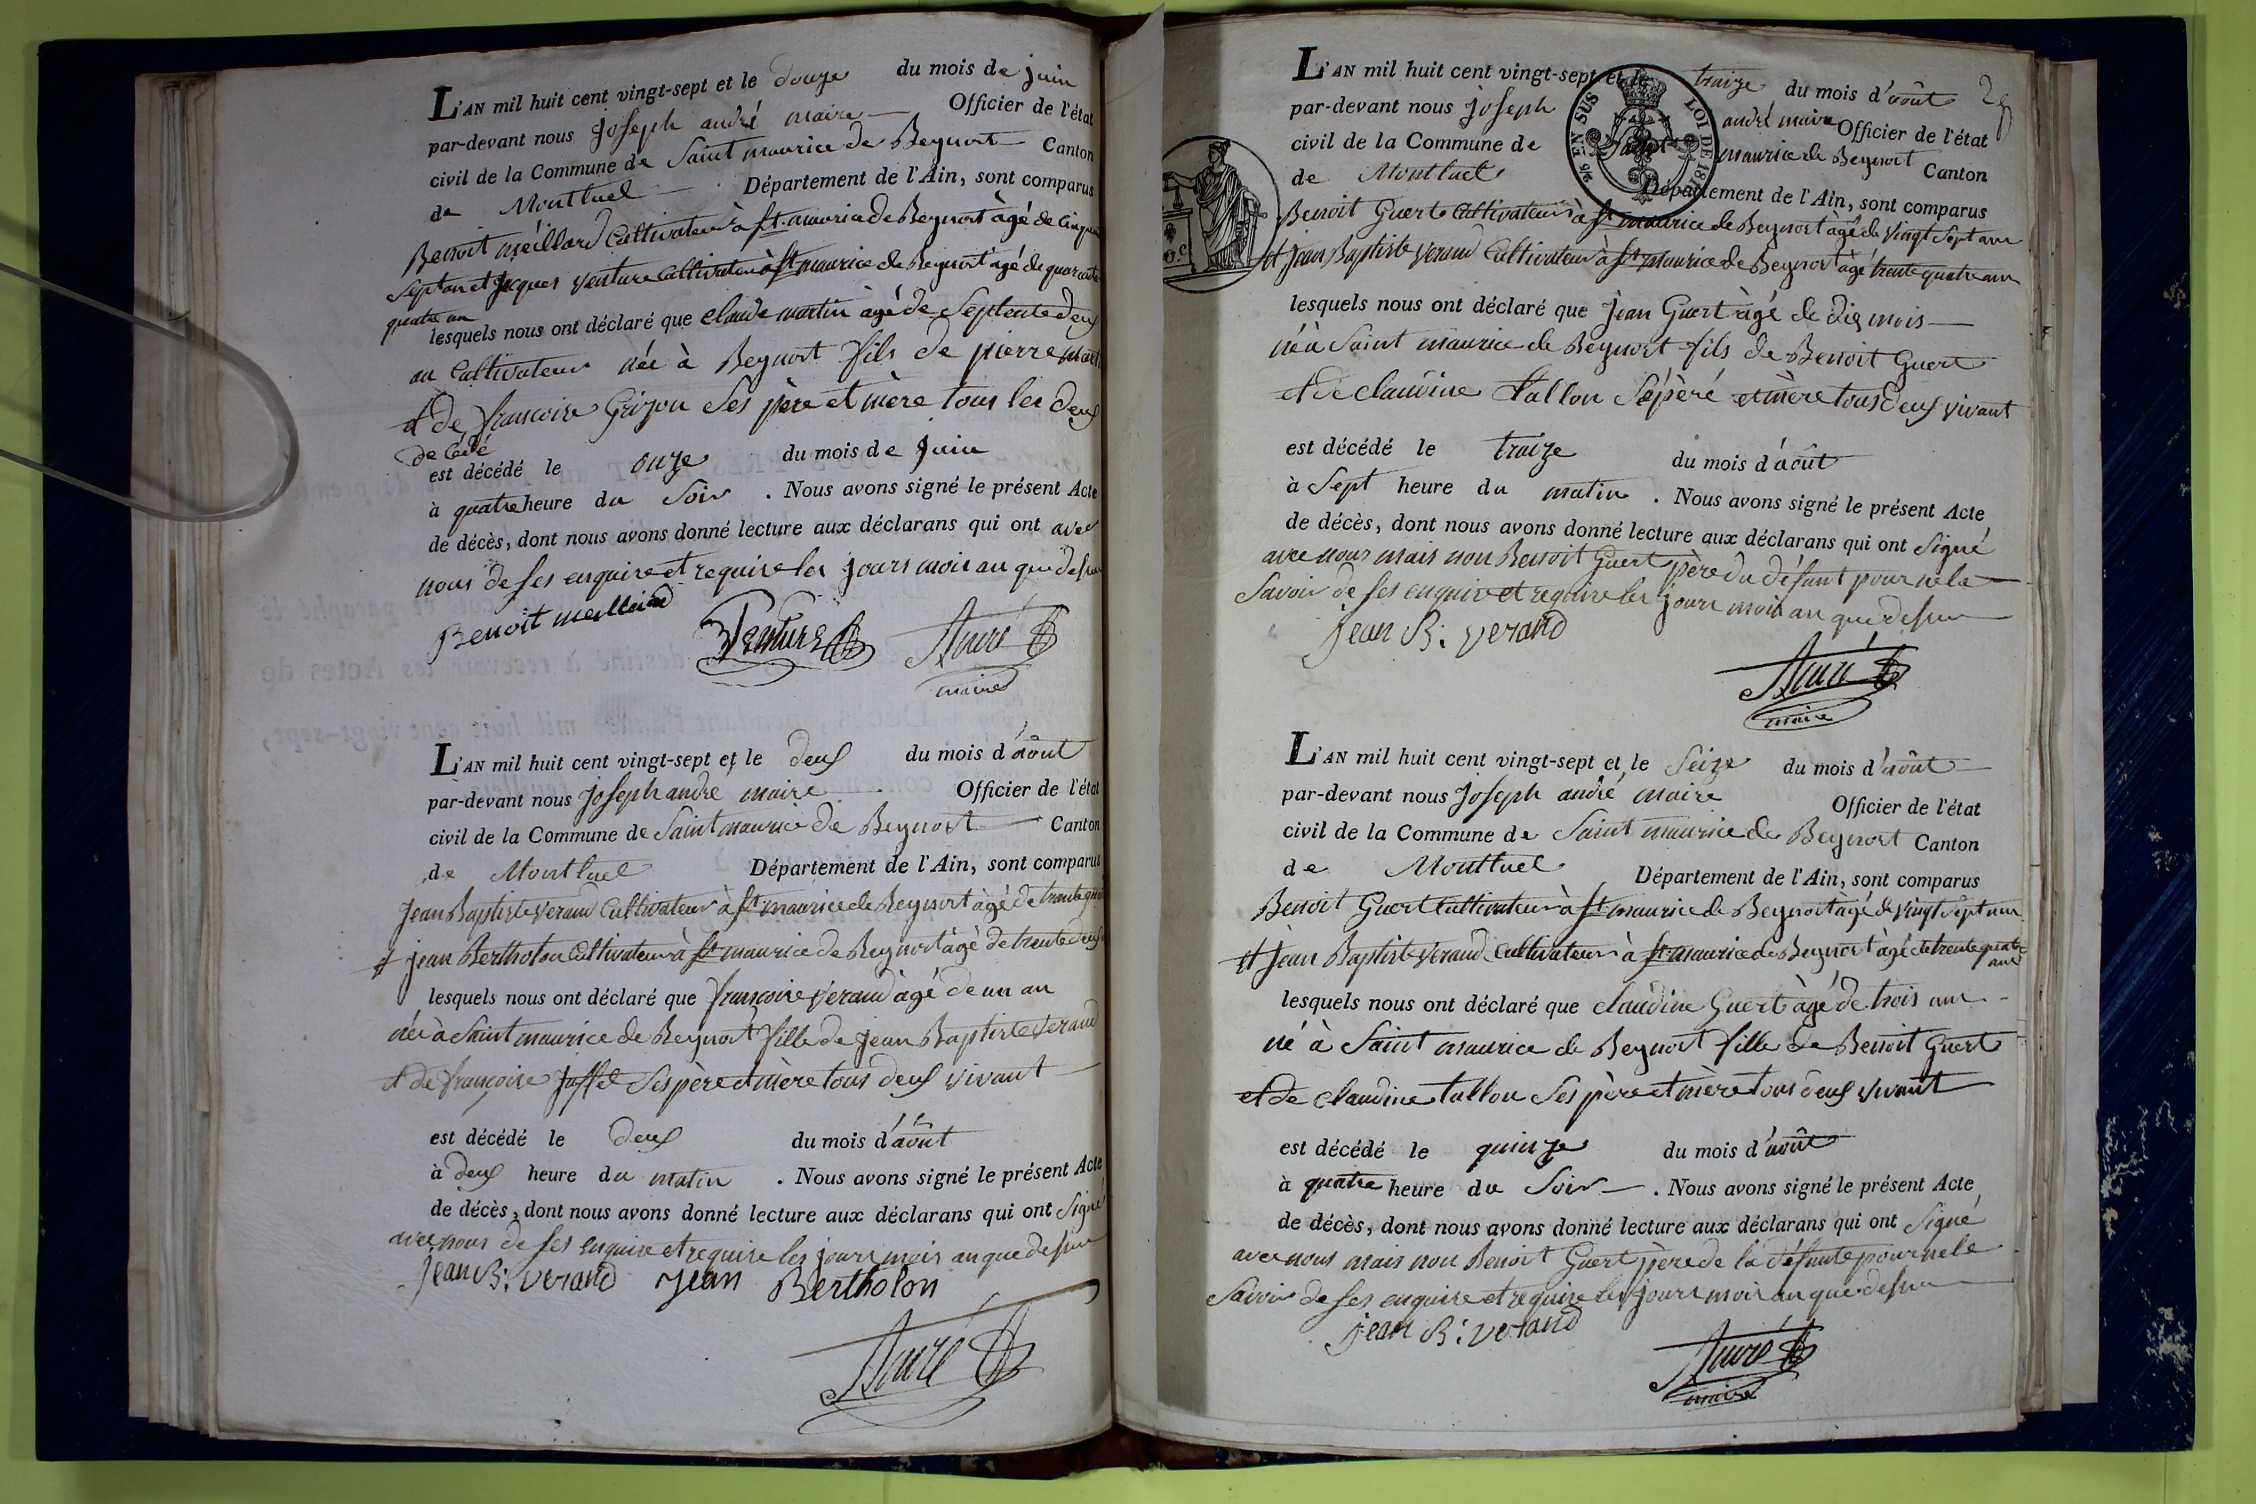 L'AN mil huit cent vingt-sept et le douze du mois de juin
par-devant nous joseph andré maire Officier de l'état
civil de la Commune de Saint maurice de Beynost Canton
de Montluel Département de l'Ain, sont comparus
Benoit meillard Cultivateur à St. maurice de Beynost âgé de Cinquante
Sept an et jacques venture Cultivateur à St maurice de Beynost âgé de quarante
quatre an
lesquels nous ont déclaré que claude martin âgé de Septente deux
an Cultivateur née à Beynost fils de pierre martin
et de francoise Grizou Ses père et mère tous les deux
de Cédé
est décédé le onze du mois de juin
à quatre heure du Soir . Nous avons signé le présent Acte
de décès, dont nous avons donné lecture aux déclarans qui ont avec
nous de ses enquire et require les jours mois an que dessus
Benoit meillard Venture André
maire
L'AN mil huit cent vingt-sept et le deux du mois d'août
par-devant nous joseph andré maire Officier de l'état
civil de la Commune de Saint maurice de Beynost Canton
de Montluel Département de l'Ain, sont comparus
Jean Baptiste Verand Cultivateur à St maurice de Beynost âgé de trente quatre
et jean Bertholon Cultivateur à St maurice de Beynost âgé de trente deux
lesquels nous ont déclaré que françoise Verand âgé de un an
née à Saint maurice de Beynost fille de jean Baptiste Verand
et de françoise Joffel Ses père et mère tous deux vivant
est décédé le deux du mois d'août
à deux heure du matin . Nous avons signé le présent Acte
de décès, dont nous avons donné lecture aux déclarans qui ont Signé
avec nous de ses enquire et require les jours mois an que dessus
jean B: verand jean Bertholon
André
L'AN mil huit cent vingt-sept et le traize du mois d'août 29
par-devant nous joseph andré maire Officier de l'état
civil de la Commune de Saint maurice de Beynost Canton
de Montluel Département de l'Ain, sont comparus
2/6 EN SUS LOI DE 181
Benoit Guert Cultivateur à St maurice de Beynost âgé de vingt Sept ans
et jean Baptiste verand Cultivateur à St maurice de Beynost âgé trente quatre ans
lesquels nous ont déclaré que jean Guert âgé de dix mois
né à Saint maurice de Beynost fils de Benoit Guert
et de claudine tallon Sépèré et mère tous deux vivant
est décédé le traize du mois d'août
à Sept heure du matin . Nous avons signé le présent Acte
de décès, dont nous avons donné lecture aux déclarans qui ont Signé
avec nous mais non Benoit Guert père du défunt pour ne le
Savoir de ses enquire et require les jours mois an que dessus
jean B: verand
André
maire
L'AN mil huit cent vingt-sept et le Seize du mois d'août
par-devant nous joseph andré maire Officier de l'état
civil de la Commune de Saint maurice de Beynost Canton
de Montluel Département de l'Ain, sont comparus
Benoit Guert Cultivateur à St maurice de Beynost âgé de vingt Sept ans
et jean Baptiste verand Cultivateur à St maurice de Beynost âgé de trente quatre
ans
lesquels nous ont déclaré que claudine Guert âgé de trois ans
né à Saint maurice de Beynost fille de Benoit Guert
et de claudine tallon Ses père et mère tous deux vivant
est décédé le quinze du mois d'août
à quatre heure du Soir . Nous avons signé le présent Acte
de décès, dont nous avons donné lecture aux déclarans qui ont Signé
avec nous mais non Benoit Guert père de la défunte pour ne le
Savoir de ses enquire et require les jours mois an que dessus
jean B: verand
André
maire